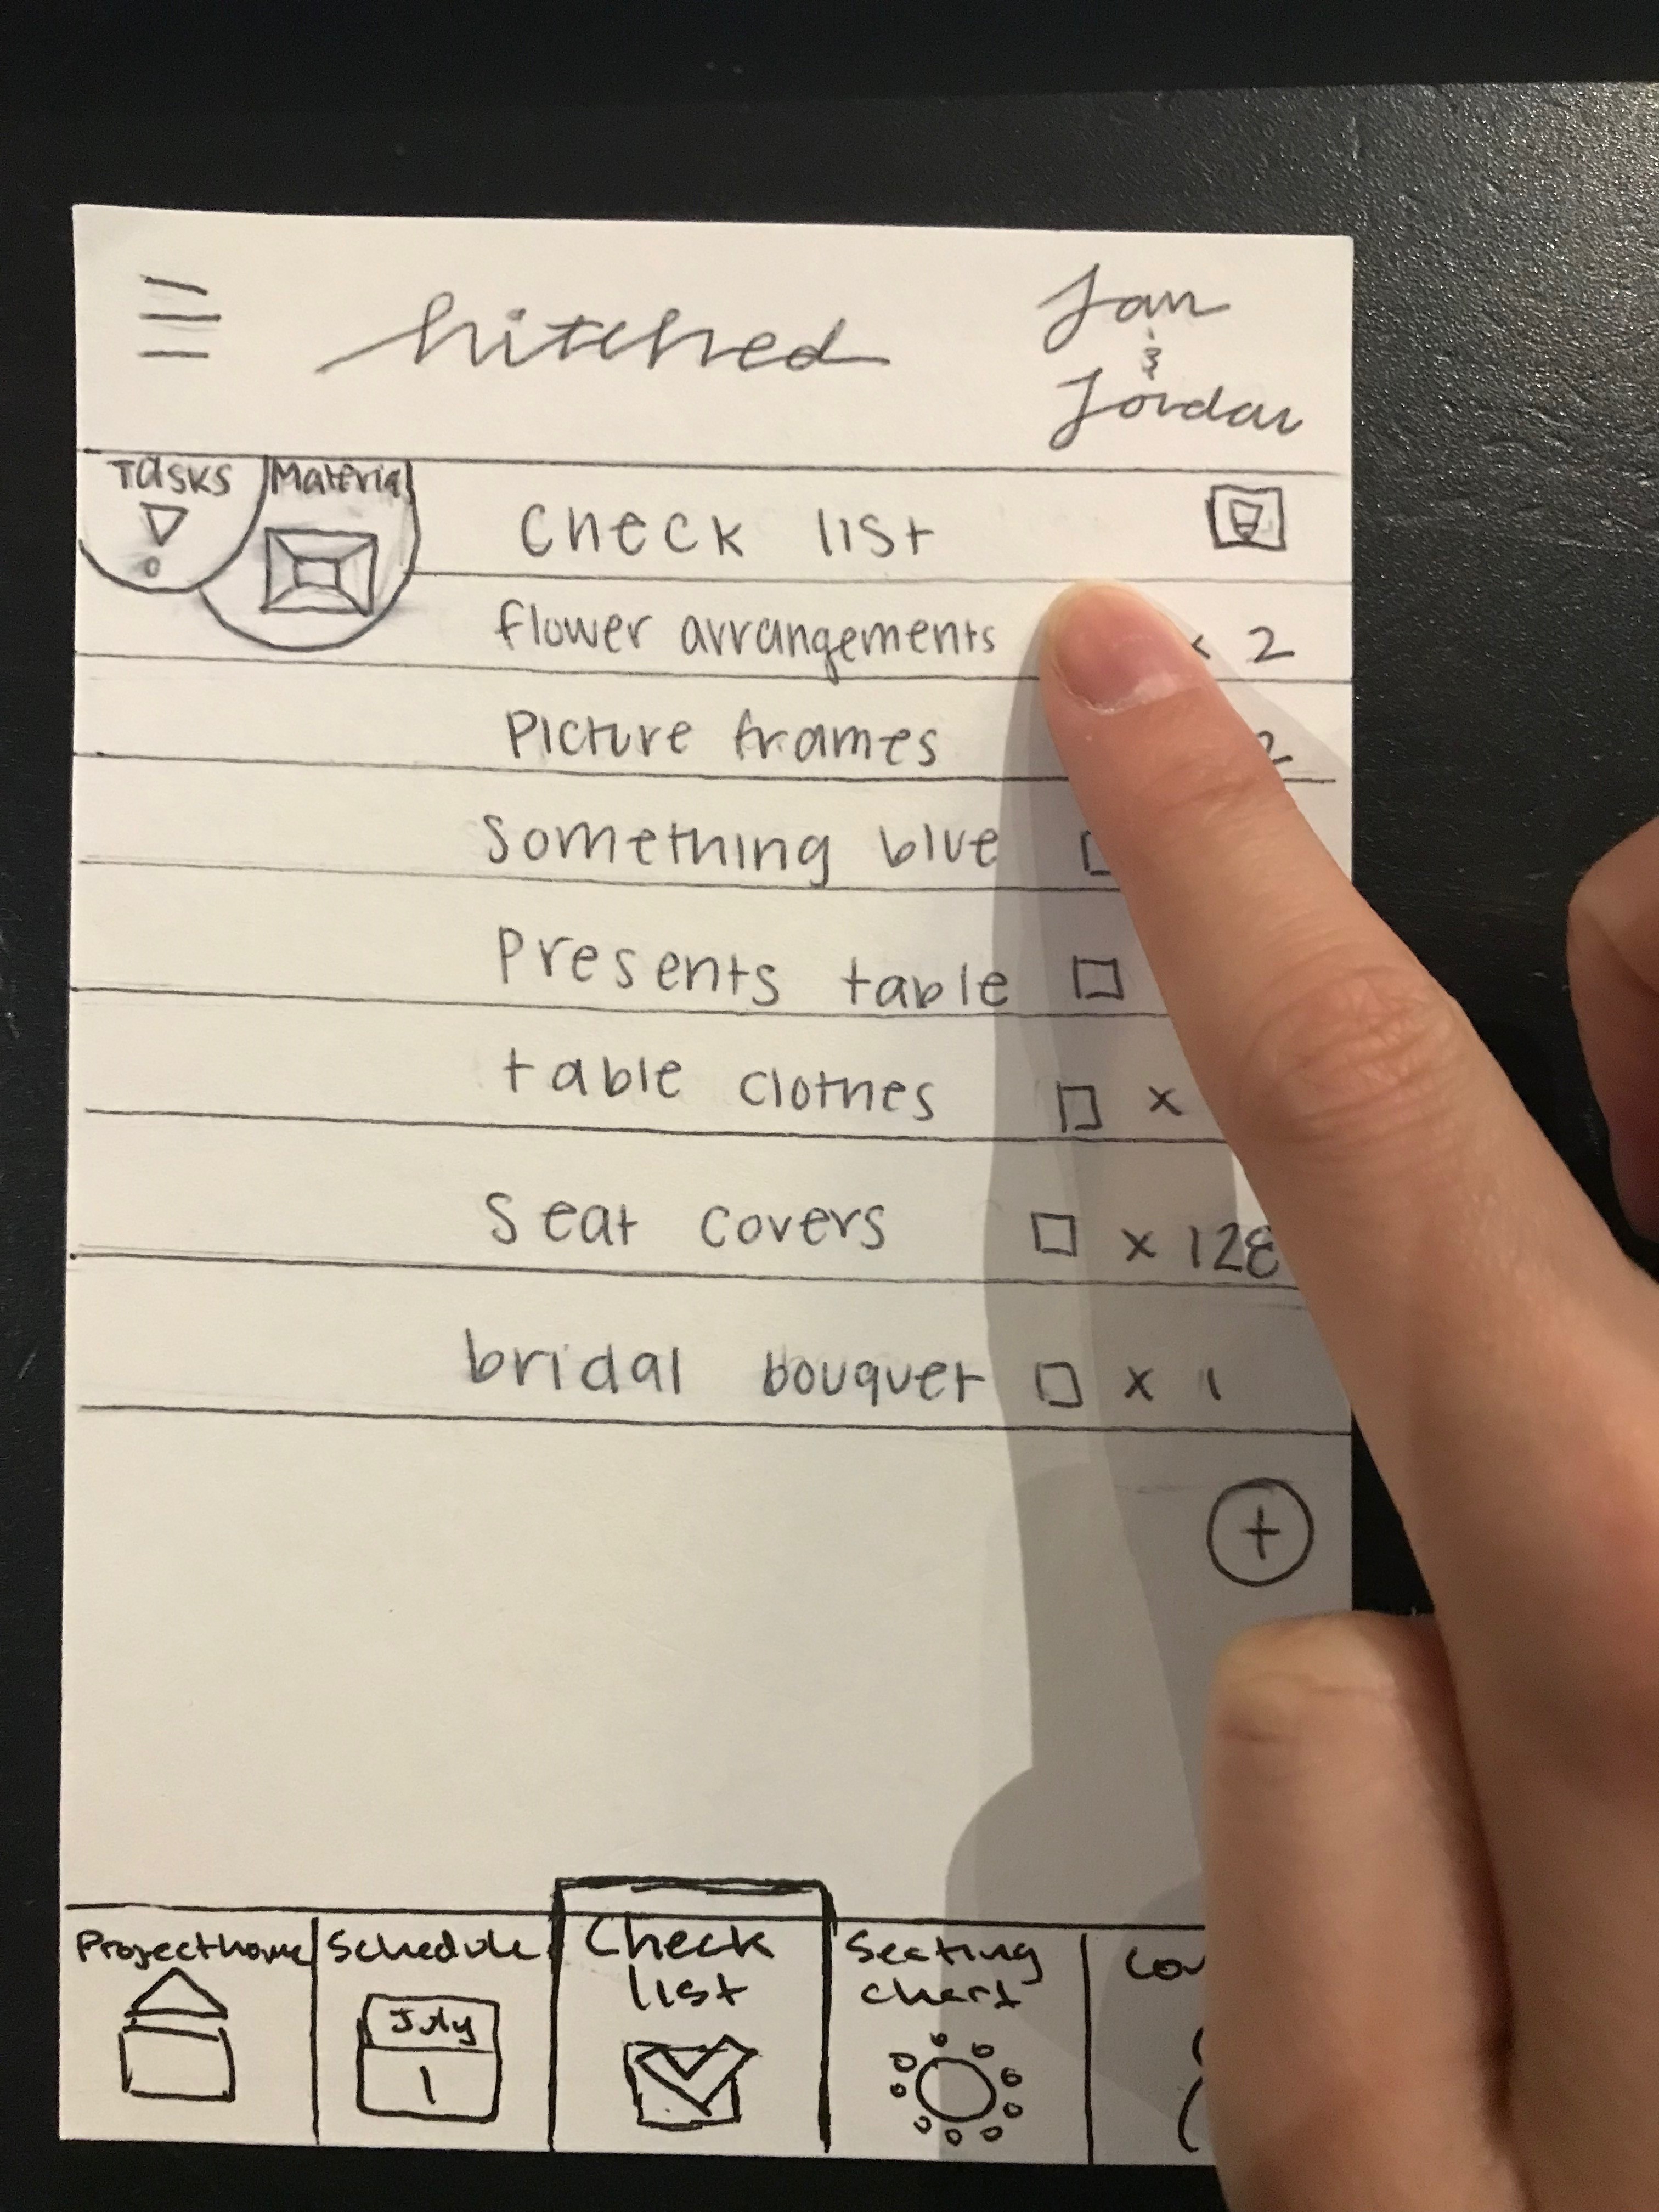 hitched
Jan
&
Jordan
Tasks
Material
Check list
flower arrangements x 2
Picture frames 2
Something blue
Presents table
table clothes x
Seat covers x 128
bridal bouquet x 1
+
Project home
Schedule
July
1
Check
list
Seating
chart